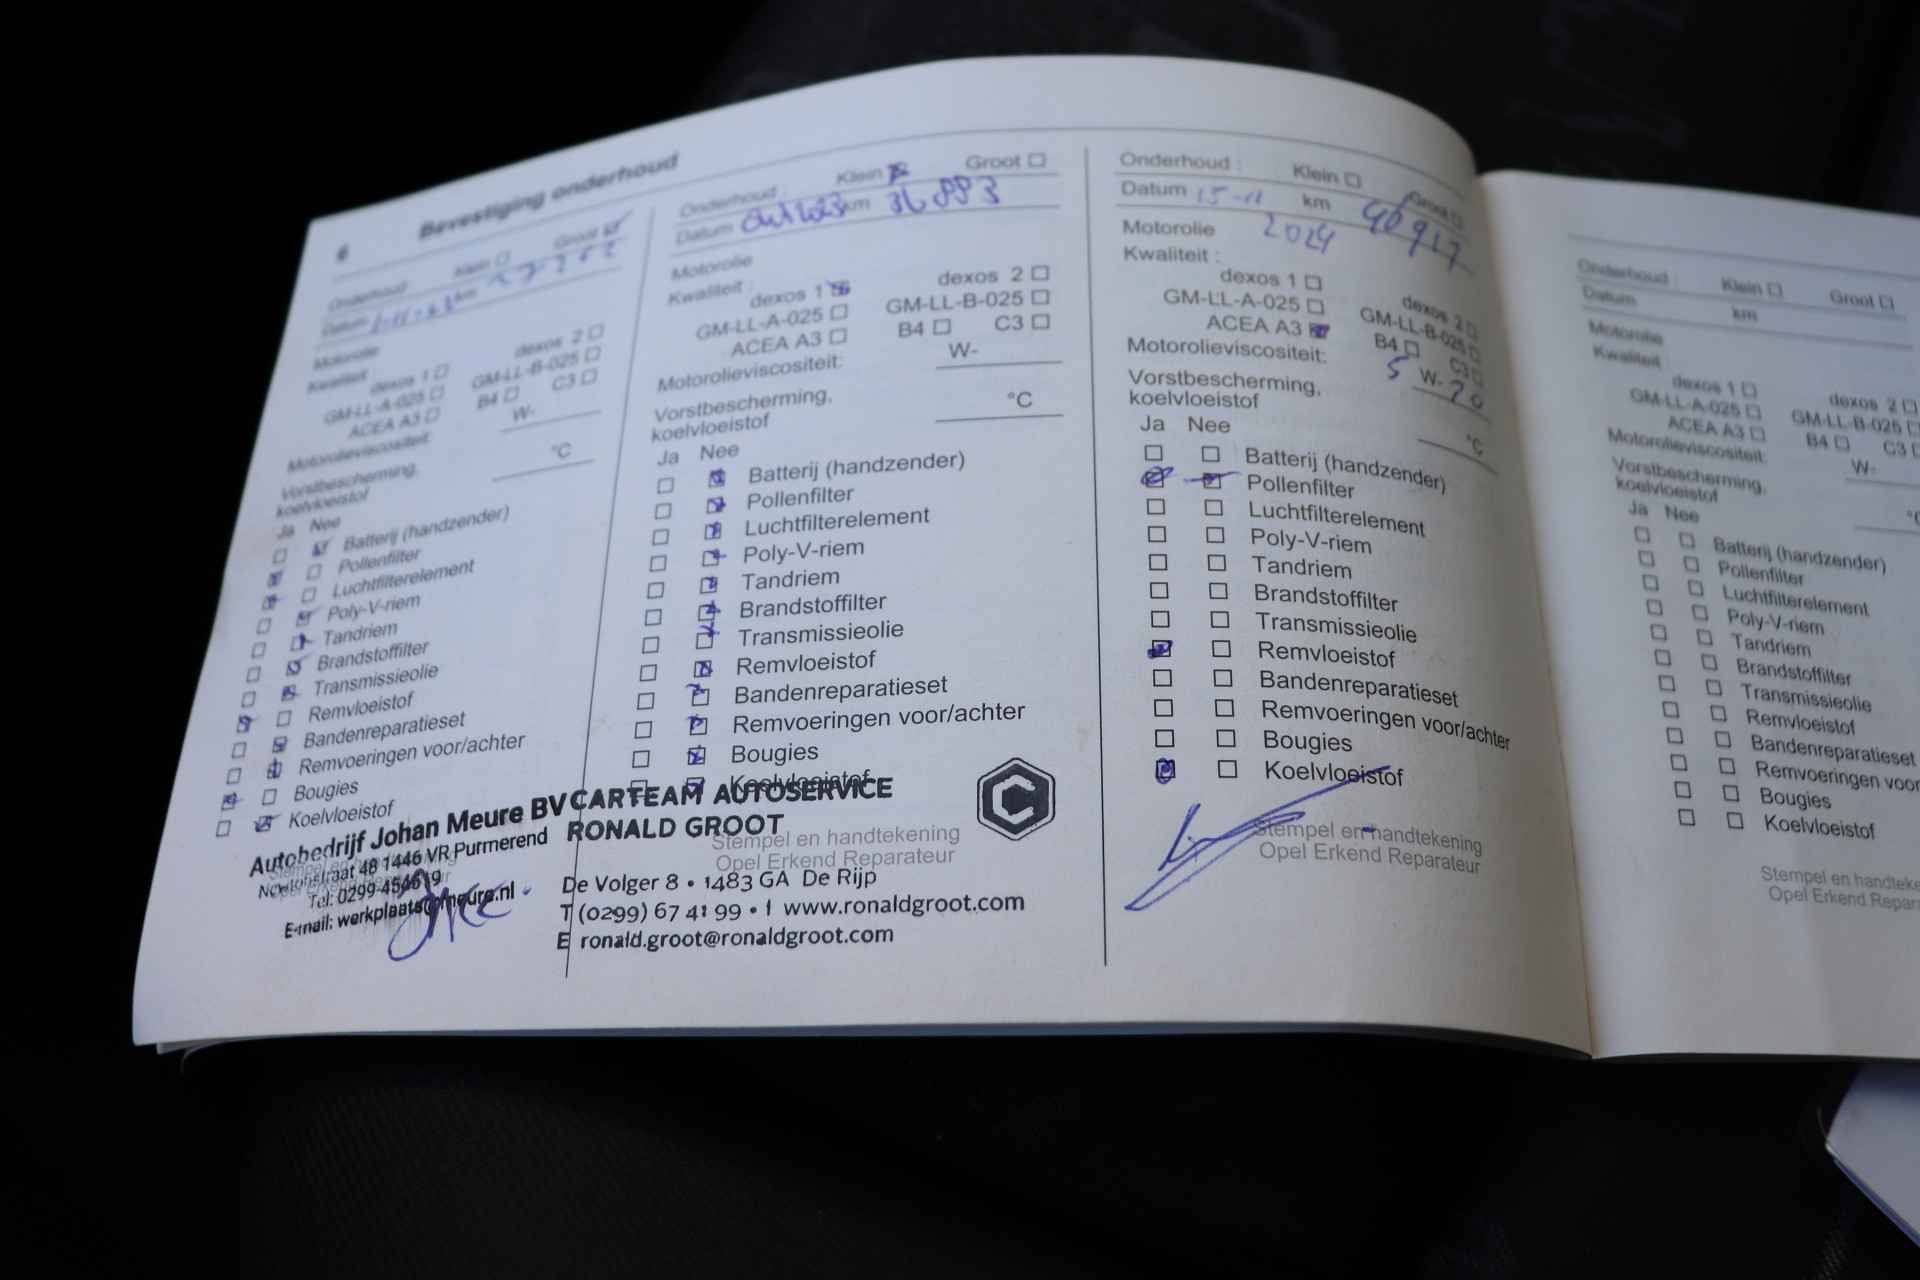 6 Bevestiging onderhoud
Onderhoud : Klein Groot
Datum km
Motorolie
Kwaliteit :
dexos 1 dexos 2
GM-LL-A-025 GM-LL-B-025
ACEA A3 B4 C3
Motorolieviscositeit: W-
Vorstbescherming,
koelvloeistof °C
Ja Nee
Batterij (handzender)
Pollenfilter
Luchtfilterelement
Poly-V-riem
Tandriem
Brandstoffilter
Transmissieolie
Remvloeistof
Bandenreparatieset
Remvoeringen voor/achter
Bougies
Koelvloeistof
Autobedrijf Johan Meure BV
Newtonstraat 48 1446 VR Purmerend
Tel: 0299-454619
E-mail: werkplaats@jmeure.nl
Onderhoud : Klein Groot
Datum km 36883
Motorolie
Kwaliteit :
dexos 1 dexos 2
GM-LL-A-025 GM-LL-B-025
ACEA A3 B4 C3
Motorolieviscositeit: W-
Vorstbescherming,
koelvloeistof °C
Ja Nee
Batterij (handzender)
Pollenfilter
Luchtfilterelement
Poly-V-riem
Tandriem
Brandstoffilter
Transmissieolie
Remvloeistof
Bandenreparatieset
Remvoeringen voor/achter
Bougies
Koelvloeistof
CARTEAM AUTOSERVICE
RONALD GROOT
Stempel en handtekening
Opel Erkend Reparateur
De Volger 8 • 1483 GA De Rijp
T (0299) 67 41 99 • I www.ronaldgroot.com
E ronald.groot@ronaldgroot.com
Onderhoud : Klein Groot
Datum 15-11 km 46927
Motorolie 2024
Kwaliteit :
dexos 1 dexos 2
GM-LL-A-025 GM-LL-B-025
ACEA A3 B4 C3
Motorolieviscositeit: 5 W-20
Vorstbescherming,
koelvloeistof °C
Ja Nee
Batterij (handzender)
Pollenfilter
Luchtfilterelement
Poly-V-riem
Tandriem
Brandstoffilter
Transmissieolie
Remvloeistof
Bandenreparatieset
Remvoeringen voor/achter
Bougies
Koelvloeistof
Stempel en handtekening
Opel Erkend Reparateur
Onderhoud : Klein Groot
Datum km
Motorolie
Kwaliteit :
dexos 1 dexos 2
GM-LL-A-025 GM-LL-B-025
ACEA A3 B4 C3
Motorolieviscositeit: W-
Vorstbescherming,
koelvloeistof
Ja Nee
Batterij (handzender)
Pollenfilter
Luchtfilterelement
Poly-V-riem
Tandriem
Brandstoffilter
Transmissieolie
Remvloeistof
Bandenreparatieset
Remvoeringen voor
Bougies
Koelvloeistof
Stempel en handteke
Opel Erkend Repar